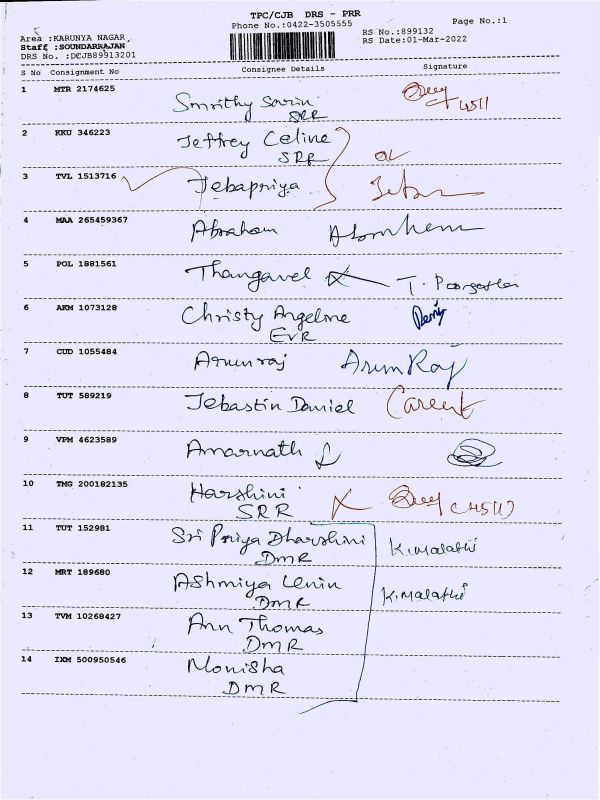 TPC/CJB DRS - PRR
Phone No.:0422-3505555
Page No.:1
Area :KARUNYA NAGAR,
Staff :SOUNDARRAJAN
DRS No. :DCJB89913201
RS No.:899132
RS Date:01-Mar-2022
S No Consignment No Consignee Details Signature
1 MTR 2174625 Smrithy Sarin
SRR
2 KKU 346223 Jeffrey Celine
SRR
3 TVL 1513716 Jebapriya
4 MAA 265459367 Abraham
5 POL 1881561 Thangavel
6 AKM 1073128 Christy Angeline
EVR
7 CUD 1055484 Arunraj ArunRaj
8 TUT 589219 Jebastin Daniel
9 VPM 4623589 Amarnath
10 TMG 200182135 Harshini
SRR
11 TUT 152981 Sri Priya Dharshini K.Malathi
DMR
12 MRT 189680 Ashmiya Lenin K.Malathi
DMR
13 TVM 10268427 Ann Thomas
DMR
14 IXM 500950546 Monisha
DMR